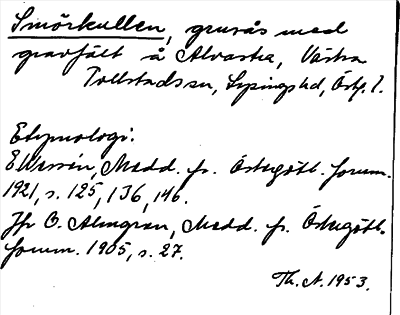 Smörkullen, grusås med
gravfält å Alvastra, Västra
Tollstads sn, Lysings hd, Östg. l.
Etymologi:
E. Wessén, Medd. fr. Östergötl. fornm.
1921, s. 125, 136, 146.
Jfr O. Almgren, Medd. fr. Östergötl.
fornm. 1905, s. 27.
Th. A. 1953.